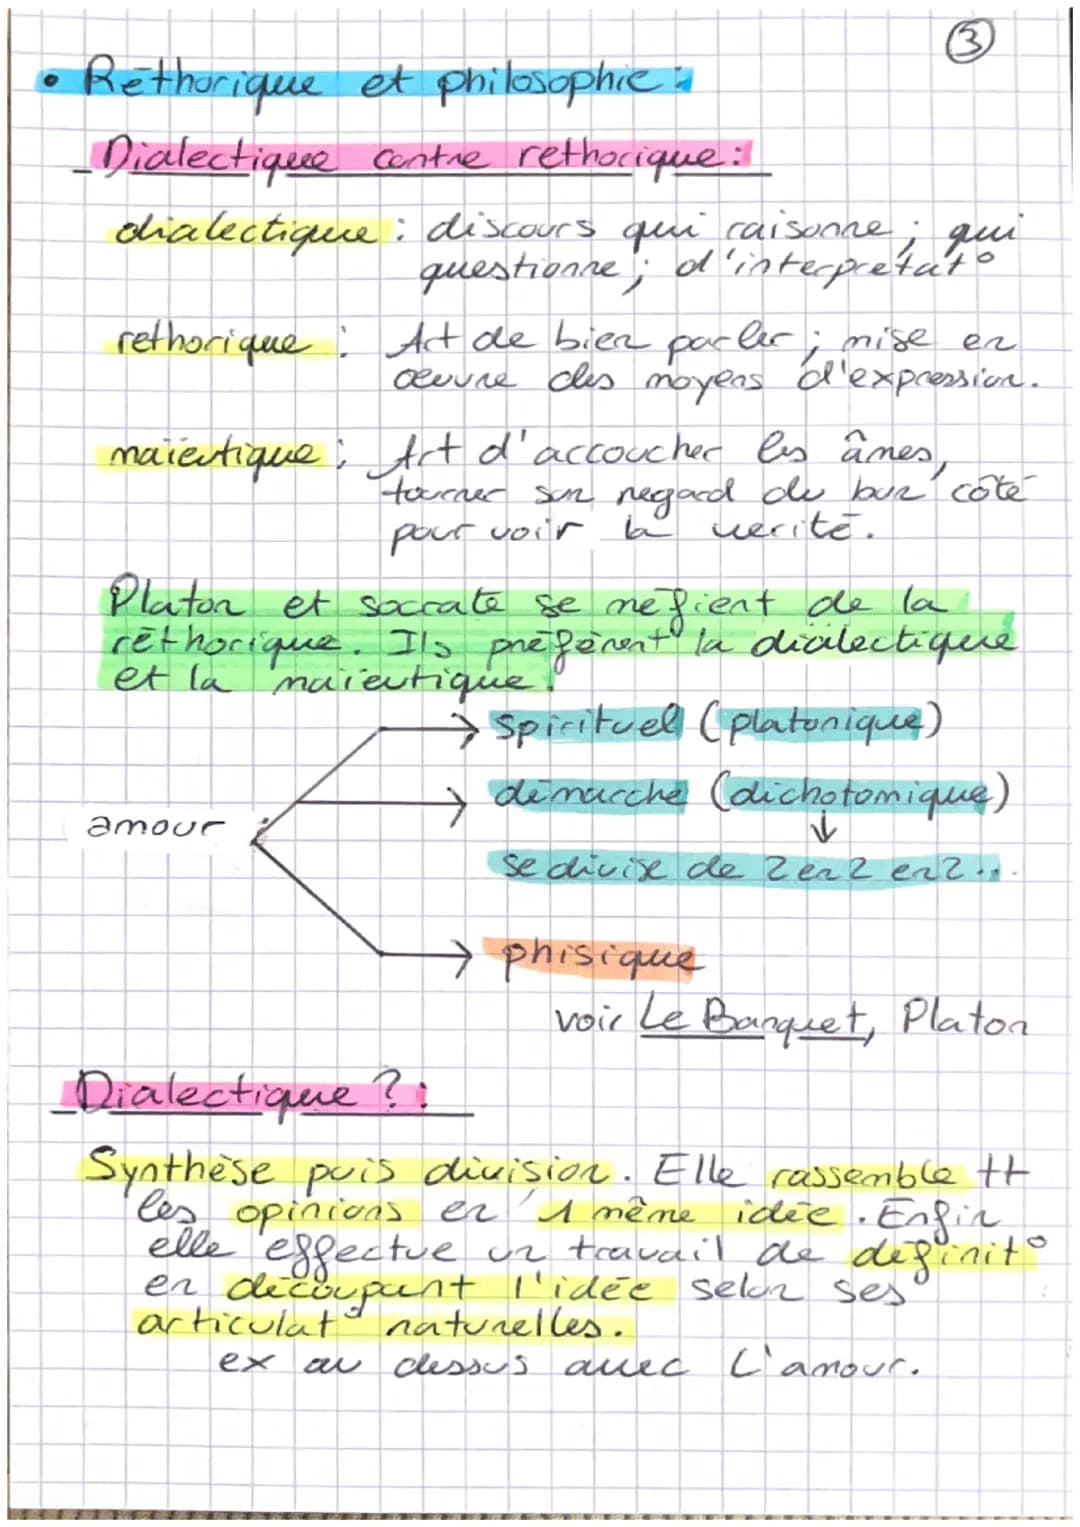 ③
• Réthorique et philosophie :
_ Dialectique contre rethorique :
dialectique : discours qui raisonne ; qui
questionne ; d'interprétat°
rethorique : Art de bien parler ; mise en
œuvre des moyens d'expression.
maïeutique : Art d'accoucher les âmes,
tourner son regard du bon côté
pour voir la verité.
Platon et socrate se méfient de la
réthorique. Ils préfèrent la dialectique
et la maïeutique.
spirituel (platonique)
démarche (dichotomique)
amour
↓
se divise de 2 en 2 en 2...
phisique
voir Le Banquet, Platon
_ Dialectique ? :
Synthèse puis division. Elle rassemble tt
les opinions en 1 même idée. Enfin
elle effectue un travail de définit°
en découpant l'idée selon ses
articulat° naturelles.
ex au dessus avec L'amour.